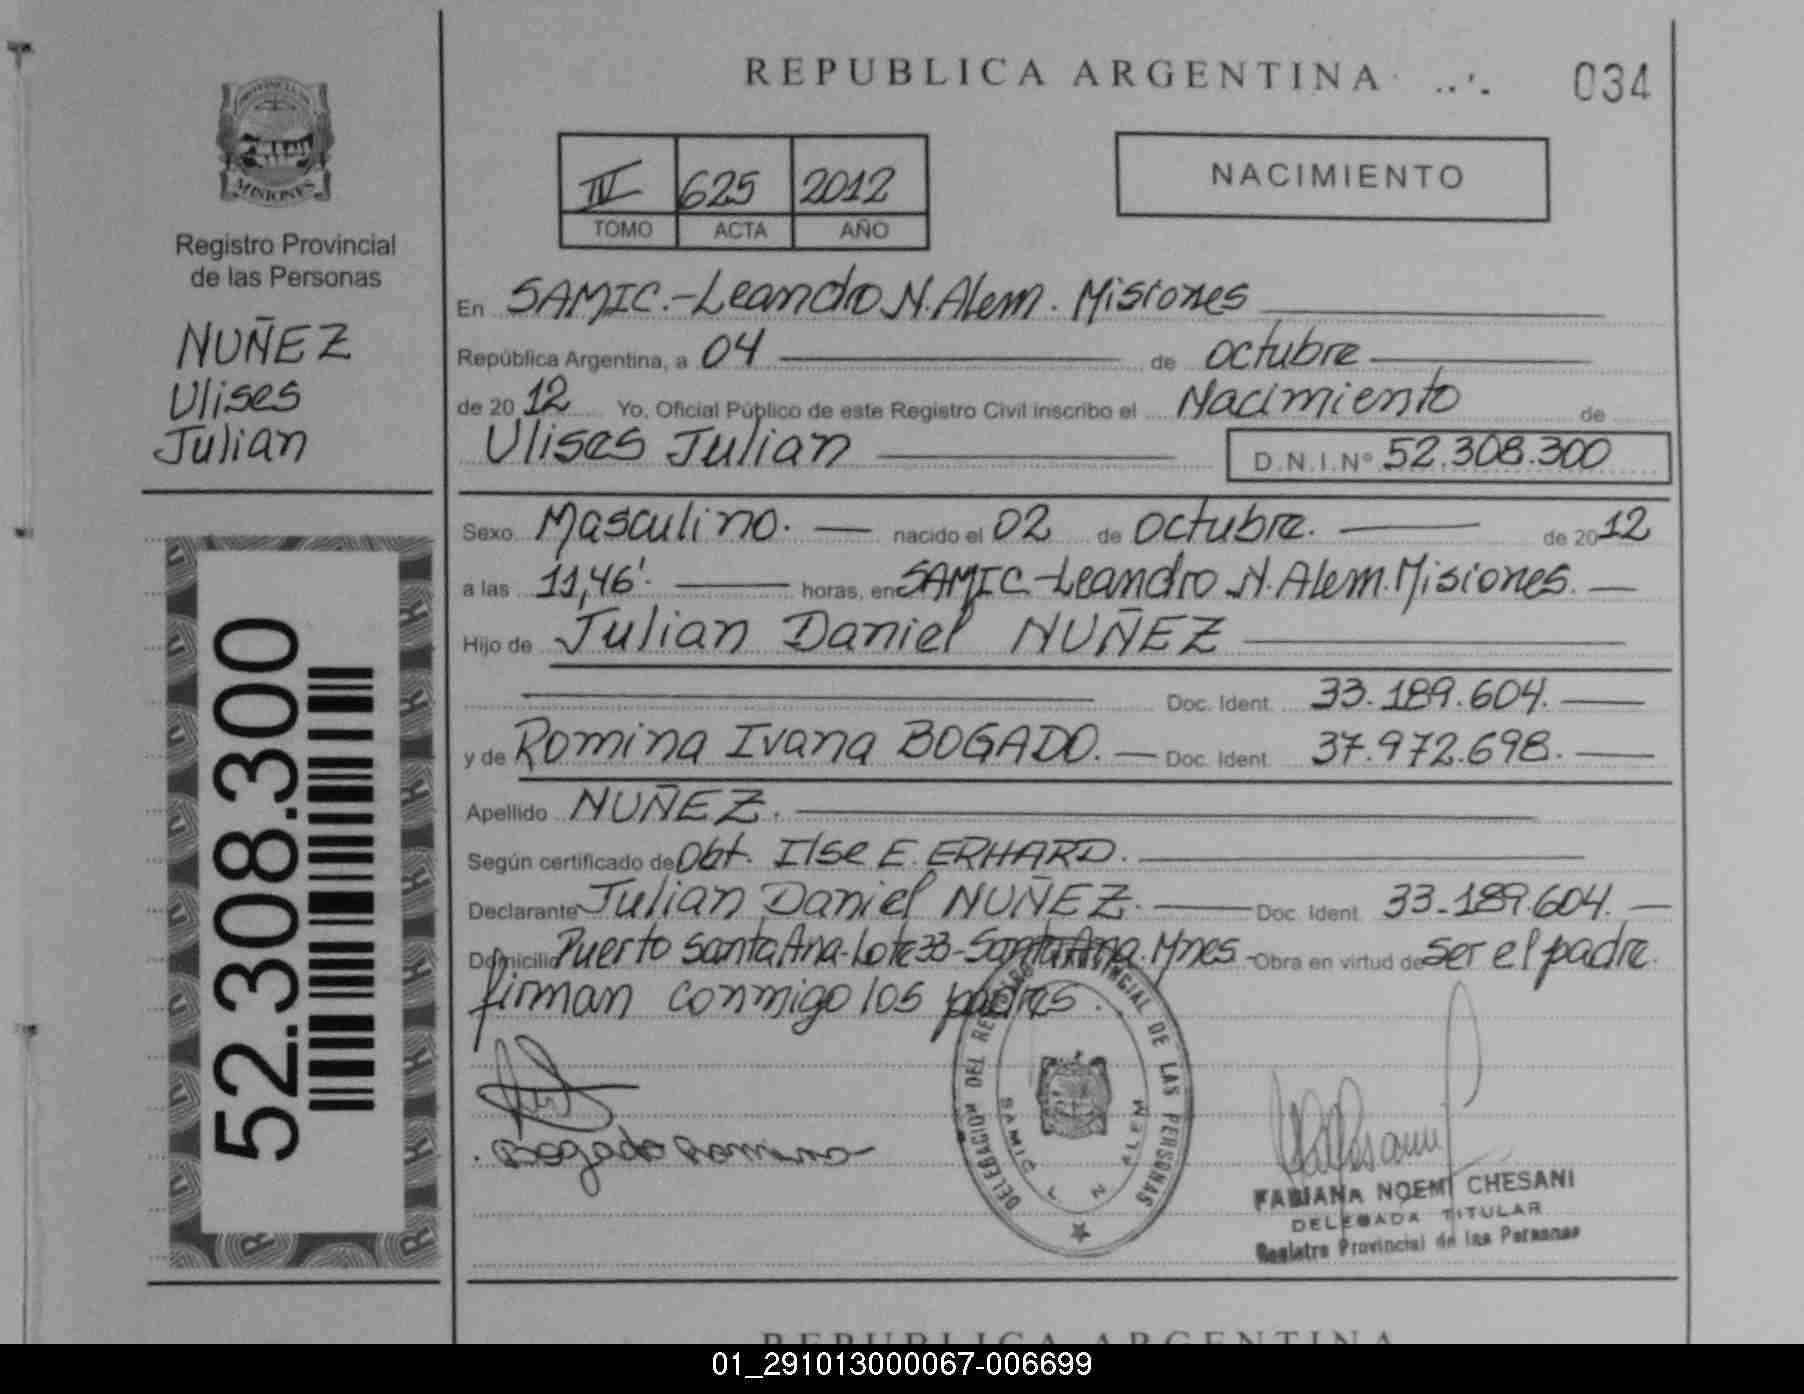 REPUBLICA ARGENTINA
034
PROVINCIA DE
MISIONES
Registro Provincial
de las Personas
NUÑEZ
Ulises
Julian
52.308.300
IV 625 2012
TOMO ACTA AÑO
NACIMIENTO
En SAMIC.-Leandro N. Alem. Misiones
República Argentina, a 04 de octubre
de 2012 Yo, Oficial Público de este Registro Civil inscribo el Nacimiento de
Ulises Julian D.N.I.Nº 52.308.300
Sexo Masculino. nacido el 02 de octubre. de 2012
a las 11,46'. horas, en SAMIC-Leandro N. Alem. Misiones.
Hijo de Julian Daniel NUÑEZ
Doc. Ident. 33.189.604.
y de Romina Ivana BOGADO. Doc. Ident. 37.972.698.
Apellido NUÑEZ.
Según certificado de Obt. Ilse E. ERHARD.
Declarante Julian Daniel NUÑEZ. Doc. Ident. 33-189.604.
Domicilio Puerto Santa Ana-Lote 33-Santa Ana. Mnes - Obra en virtud de ser el padre.
firman conmigo los padres.
Bogado Romina
DELEGACION DEL REGISTRO PROVINCIAL DE LAS PERSONAS
SAMIC L. N. ALEM
FABIANA NOEMI CHESANI
DELEGADA TITULAR
Registro Provincial de las Personas
REPUBLICA ARGENTINA
01_291013000067-006699